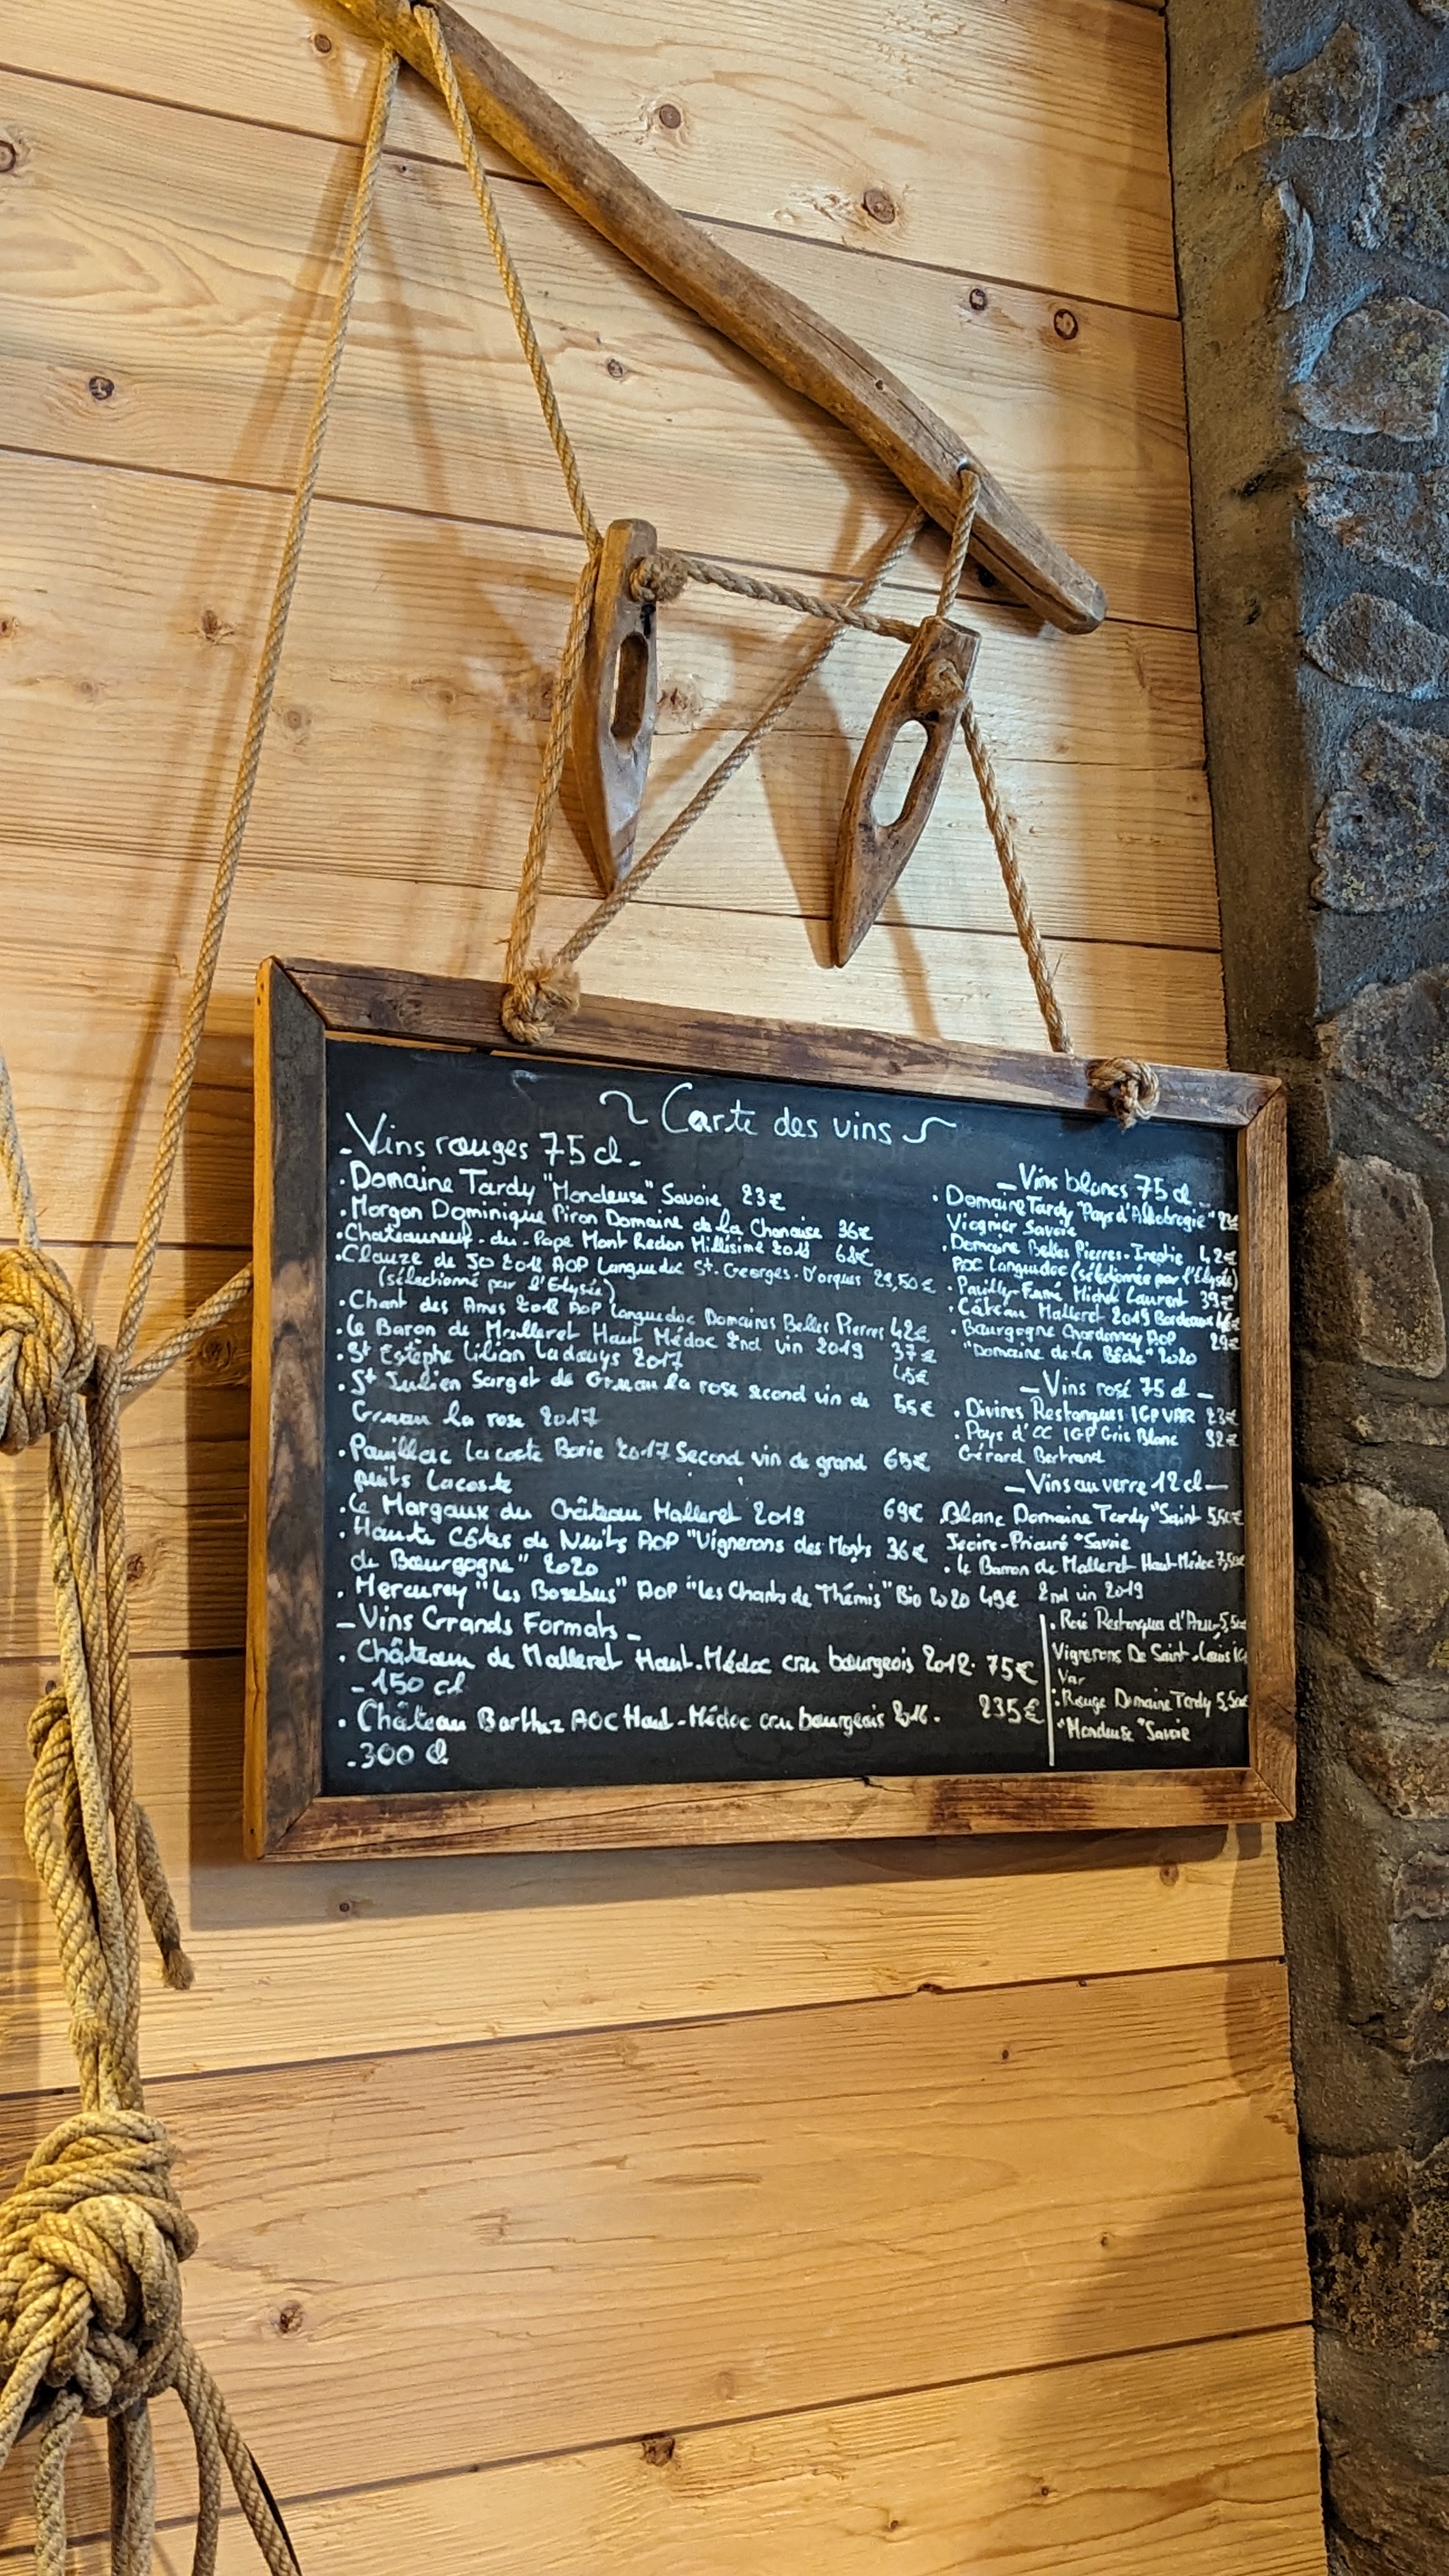 Carte des vins
- Vins rouges 75 cl -
. Domaine Tardy "Mondeuse" Savoie 23€
. Morgon Dominique Piron Domaine de la Chanaise 36€
. Chateauneuf-du-Pape Mont Redon Millésime 2018 68€
. Clauze de Jo 2018 AOP Languedoc St-Georges-D'orques 29,50€
(sélectionné par l'Elysée)
. Chant des Ames 2018 AOP Languedoc Domaines Belles Pierres 42€
. Le Baron de Malleret Haut Médoc 2nd vin 2019 37€
. St Estèphe Lilian Ladouys 2017 45€
. St Julien Sarget de Gruau la rose second vin de 55€
Gruau la rose 2017
. Pauillac Lacoste Borie 2017 Second vin de grand 65€
puits Lacoste
. Le Margaux du Château Malleret 2019 69€
. Haute Côtes de Nuits AOP "Vignerons des Monts 36€
de Bourgogne" 2020
. Mercurey "Les Bosebus" AOP "Les Chants de Thémis" Bio 2020 49€
- Vins Grands Formats -
. Château de Malleret Haut-Médoc cru bourgeois 2012. 75€
- 150 cl
. Château Barthez AOC Haut-Médoc cru bourgeois 2016. 235€
. 300 cl
- Vins blancs 75 cl -
. Domaine Tardy "Pays d'Allobrogie"
Viognier Savoie
. Domaine Belles Pierres - 42€
AOC Languedoc (sélectionnée par l'Elysée)
. Pouilly-Fumé Michel Laurent 39€
. Câteau Malleret 2019 Bordeaux
. Bourgogne Chardonnay AOP 29€
"Domaine de la Bêche" 2020
- Vins rosé 75 cl -
. Divines Restanques IGP VAR 23€
. Pays d'OC IGP Gris Blanc 32€
Gérard Bertrand
- Vins au verre 12 cl -
. Blanc Domaine Tardy "Saint 5,50€
Jeoire-Prieuré" Savoie
. Le Baron de Malleret Haut-Médoc 7,50€
2nd vin 2019
. Rosé Restanques d'Azur 5,50€
Vignerons De Saint-Louis
Var
. Rouge Domaine Tardy 5,50€
"Mondeuse" Savoie